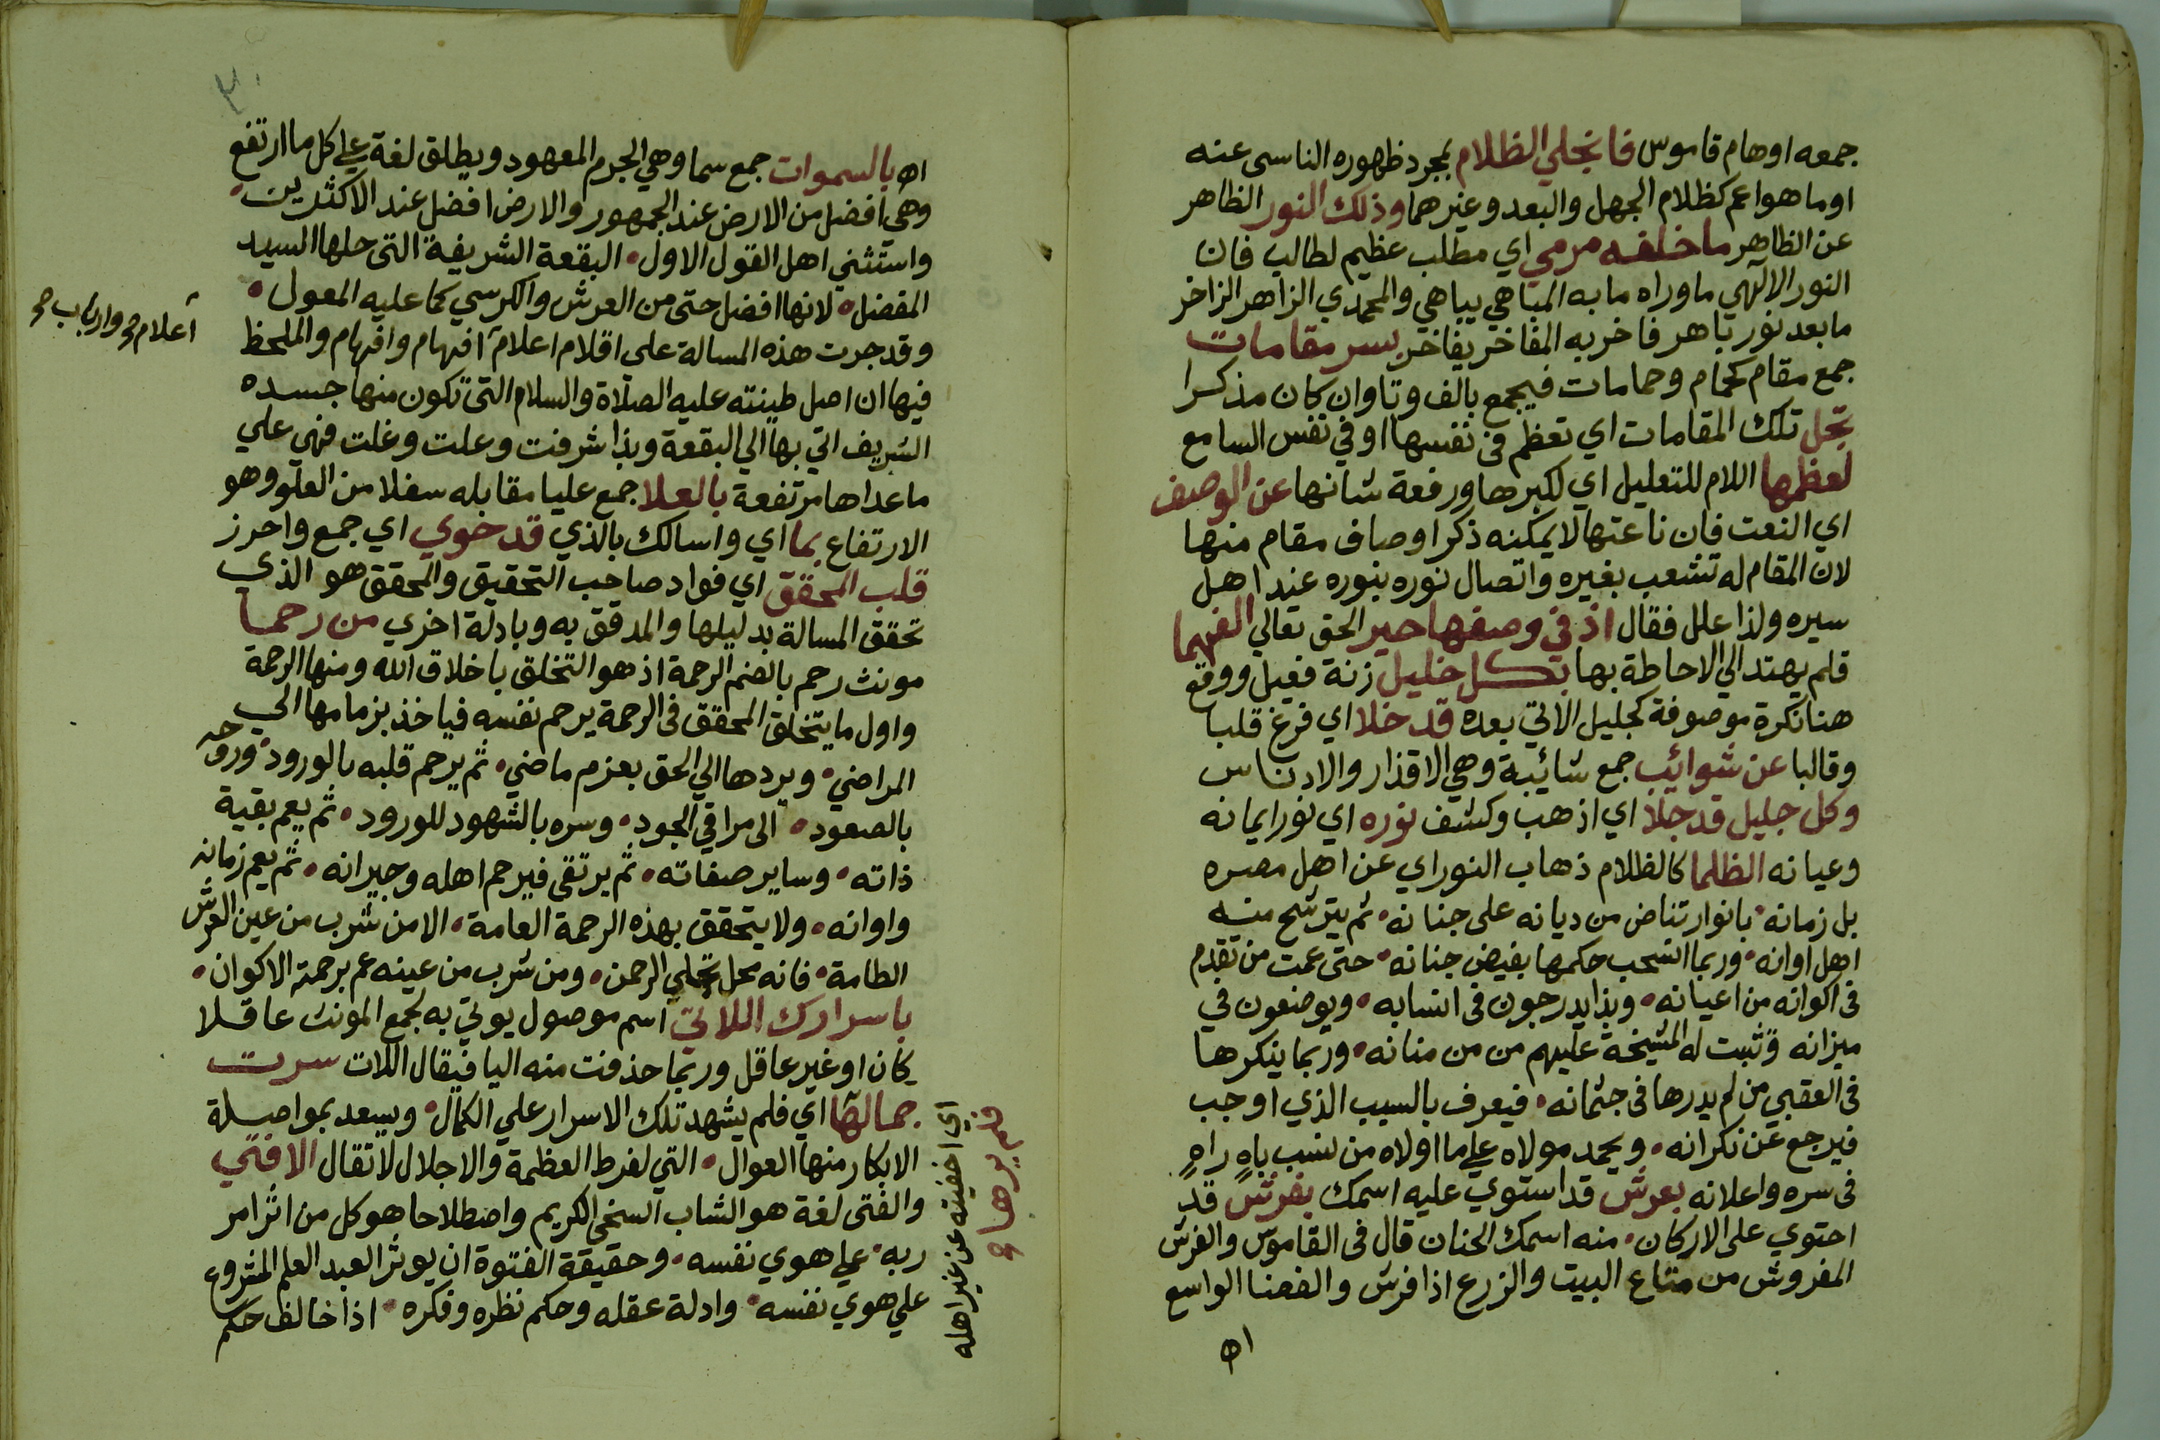 جمعه اوهام قاموس فانجلي الظلام بمجرد ظهوره الناسى عنه
اوما هو اعم كظلام الجهل والبعد وغيرهما وذلك النور الظاهر
عن الظاهر ما خلفه مرمي اي مطلب عظيم لطالب فان
النور الالهي ما وراه ما به المباهي يباهي والمحمدي الزاهر الزاخر
ما بعد نور باهر فاخر به المفاخر يفاخر بسر مقامات
جمع مقام كحمام وحمامات فيجمع بالف وتا وان كان مذكرا
تجل تلك المقامات اي تعظم في نفسها او في نفس السامع
لعظمها اللام للتعليل اي لكبرها ورفعة شانها عن الوصف
اي النعت فان ناعتها لا يمكنه ذكر اوصاف مقام منها
لان المقام له تشعب بغيره واتصال نوره بنوره عند اهل
سيره ولذا علل فقال اذ في وصفها حير الحق تعالي الفهما
فلم يهتد الي الاحاطة بها بكل خليل زنة فعيل ووقع
هنا نكرة موصوفة كجليل الاتي بعده قد خلا اي فرغ قلبا
وقالبا عن شوائب جمع شائبة وهي الاقذار والادناس
وكل جليل قد جلا اي اذهب وكشف نوره اي نور ايمانه
وعيانه الظلما كالظلام ذهاب النور اي عن اهل مصره
بل زمانه بانوار تناض من ديانه على جنانه ثم يترشح منه
اهل اوانه وربما انسحب حكمها بفيض جنانه حتى عمت من تقدم
في اكوانه من اعيانه وبذا يدرجون في انسابه ويوضعون في
ميزانه وتثبت له المشيخة عليهم من من منانه وربما ينكرها
في العقبي من لم يدرها في جثمانه فيعرف بالسبب الذي اوجب
فيرجع عن نكرانه ويحمد مولاه علي ما اولاه من نسب باه راه
في سره واعلانه بعرش قد استوي عليه اسمك بفرش قد
احتوي على الاركان منه اسمك الحنان قال في القاموس والفرش
المفروش من متاع البيت والزرع اذا فرش والفضا الواسع
اه
٣٠
اه بالسموات جمع سما وهي الجرم المعهود ويطلق لغة علي كل ما ارتفع
وهي افضل من الارض عند الجمهور والارض افضل عند الاكثرين
واستثني اهل القول الاول البقعة الشريفة التي حلها السيد
المفضل لانها افضل حتى من العرش والكرسي كما عليه المعول
وقد جرت هذه المسالة على اقلام اعلام افهام وافهام والملحظ
فيها ان اصل طينته عليه الصلاة والسلام التي تكون منها جسده
الشريف اتي بها الي البقعة وبذا شرفت وعلت وغلت فهي علي
ما عداها مرتفعة بالعلا جمع عليا مقابله سفلا من العلو وهو
الارتفاع بما اي واسالك بالذي قد حوي اي جمع واحرز
قلب المحقق اي فواد صاحب التحقيق والمحقق هو الذي
تحقق المسالة بدليلها والمدقق به وبادلة اخري من رحما
مونث رحم بالضم الرحمة اذ هو التخلق باخلاق الله ومنها الرحمة
واول ما يتخلق المحقق في الرحمة يرحم نفسه فياخذ بزمامها الي
المراضي ويردها الي الحق بعزم ماضي ثم يرحم قلبه بالورود وروحه
بالصعود الى مراقي الجود وسره بالشهود للورود ثم يعم بقية
ذاته وساير صفاته ثم يرتقي فيرحم اهله وجيرانه ثم يعم زمانه
واوانه ولا يتحقق بهذه الرحمة العامة الا من شرب من عين العرش
الطامة فانه محل تجلي الرحمن ومن شرب من عينه عم برحمة الاكوان
باسرارك اللاتي اسم موصول يوتي به لجمع المونث عاقلا
كان او غير عاقل وربما حذفت منه اليا فيقال اللات سرت
جمالها اي فلم يشهد تلك الاسرار علي الكمال ويسعد بمواصلة
الابكار منها العوال التي لفرط العظمة والاجلال لا تقال الا فتي
والفتى لغة هو الشاب السخي الكريم واصطلاحا هو كل من اثر امر
ربه علي هوي نفسه وحقيقة الفتوة ان يوثر العبد العلم المشروع
علي هوي نفسه وادلة عقله وحكم نظره وفكره اذا خالف حكم
اعلام وارباب
اي اخفيته عن غير اهله
فلم يرها